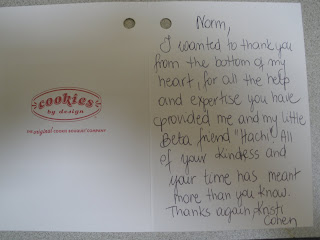 cookies
by design
THE original COOKIE BOUQUET COMPANY
Norm,
I wanted to thank you
from the bottom of my
heart, for all the help
and expertise you have
provided me and my little
Beta friend "Hachi". All
of your kindess and
your time has meant
more than you know.
Thanks again Kristi
Cohen